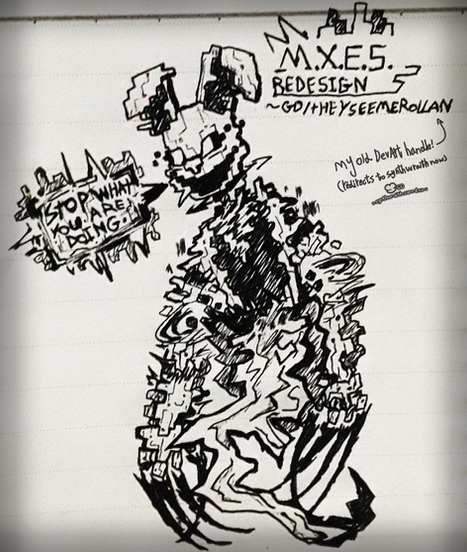 M.X.E.S.
REDESIGN
~GD/+HEYSEEMEROLLAN
my old DevArt handle!
(redirects to synthwurwith now)
STOP WHAT
YOU ARE
DOING.